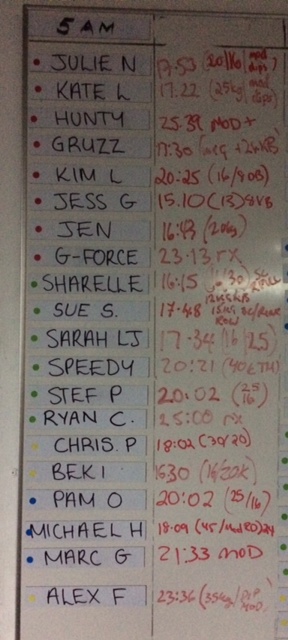 5 AM
JULIE N 17:53 (20/16 mod dips)
KATE L 17:22 (25kg mod dips)
HUNTY 25.39 MOD+
GRUZZ 17:30
KIM L 20:25 (16/90B)
JESS G 15.10 (13)
JEN 16:43 (20kg)
G-FORCE 23:13 rx
SHARELLE 16:15
SUE S. 17-48
SARAH LJ 17-34 (16/25)
SPEEDY 20:21
STEF P 20:02 (25/16)
RYAN C. 25:00 rx
CHRIS. P 18:02 (30/20)
BEK I 1630
PAM O 20:02 (25/16)
MICHAEL H 18:09
MARC G 21:33 MOD
ALEX F 23:36 (35kg